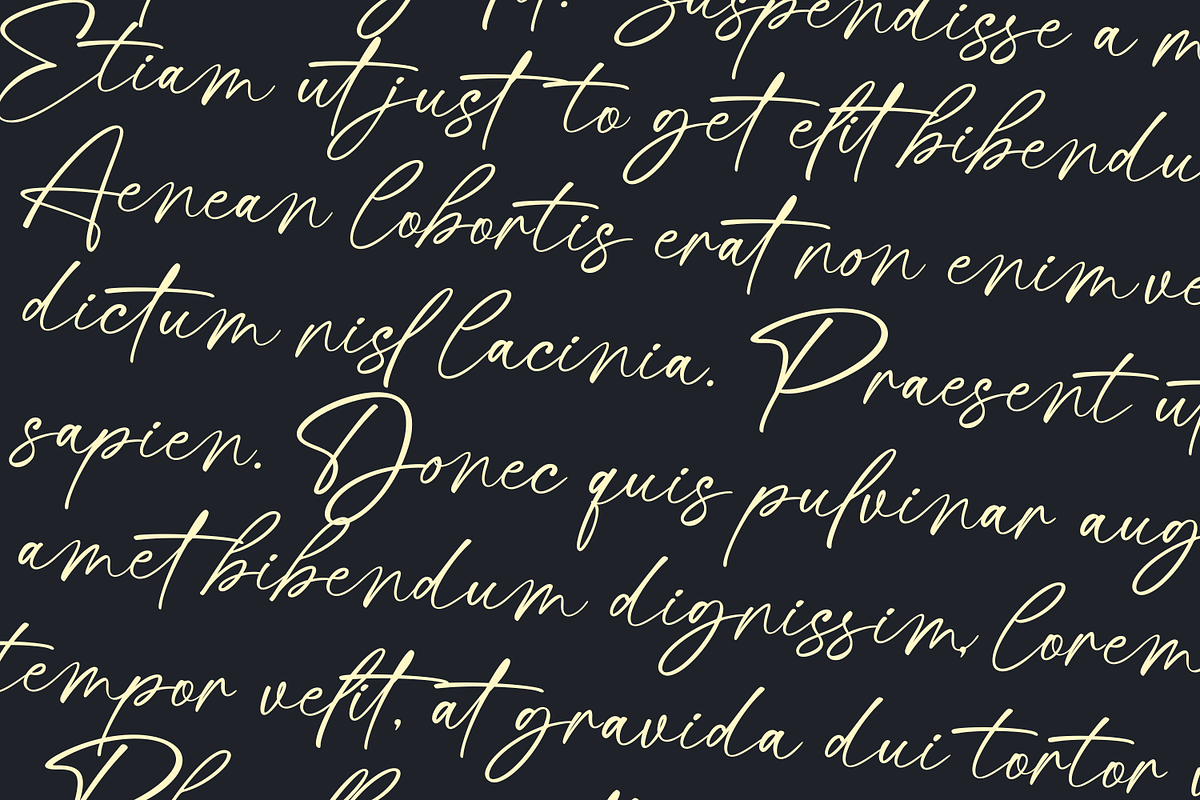 Suspendisse a m
Etiam ut just to get elit bibendu
Aenean lobortis erat non enim ve
dictum nisl lacinia. Praesent ut
sapien. Donec quis pulvinar aug
amet bibendum dignissim, lorem
tempor velit, at gravida dui tortor